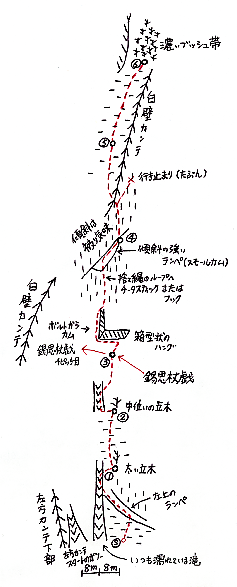 濃いブッシュ帯
⑥
白壁カンテ
⑤
行き止まり(たぶん)
傾斜は
被り気味
④
傾斜の強い
ランペ(スモールカム)
捨て縄のループへ
チータスティック または
フック
白壁カンテ
ボルトから
カム
箱型状の
ハング
錫思杖戯
③
錫思杖戯
中位いの立木
②
太い立木
①
左上の
ランペ
Ⓢ
左方カンテ下部
左方カンテ
スタートのガリー
8m
8m
いつも濡れている滝